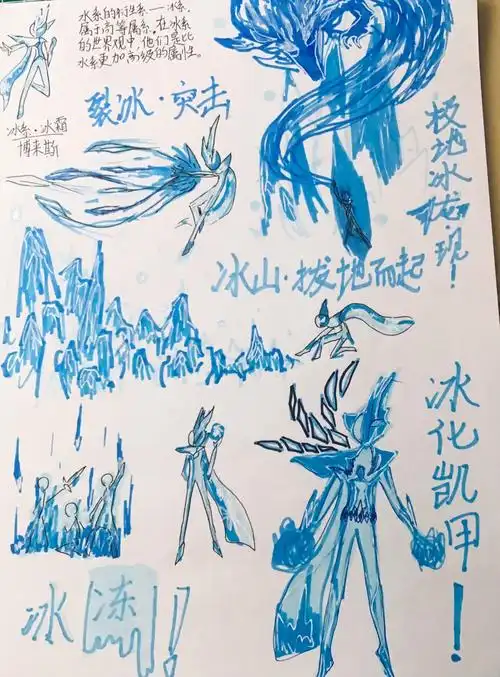 水系的衍生系——冰系,
属于高等属系。在冰系
的世界观中,他们是比
水系更加高级的属性。
冰系·冰霜
博来斯
裂冰·突击
极地冰龙·现!
冰山·拔地而起
冰化凯甲!
冰冻!